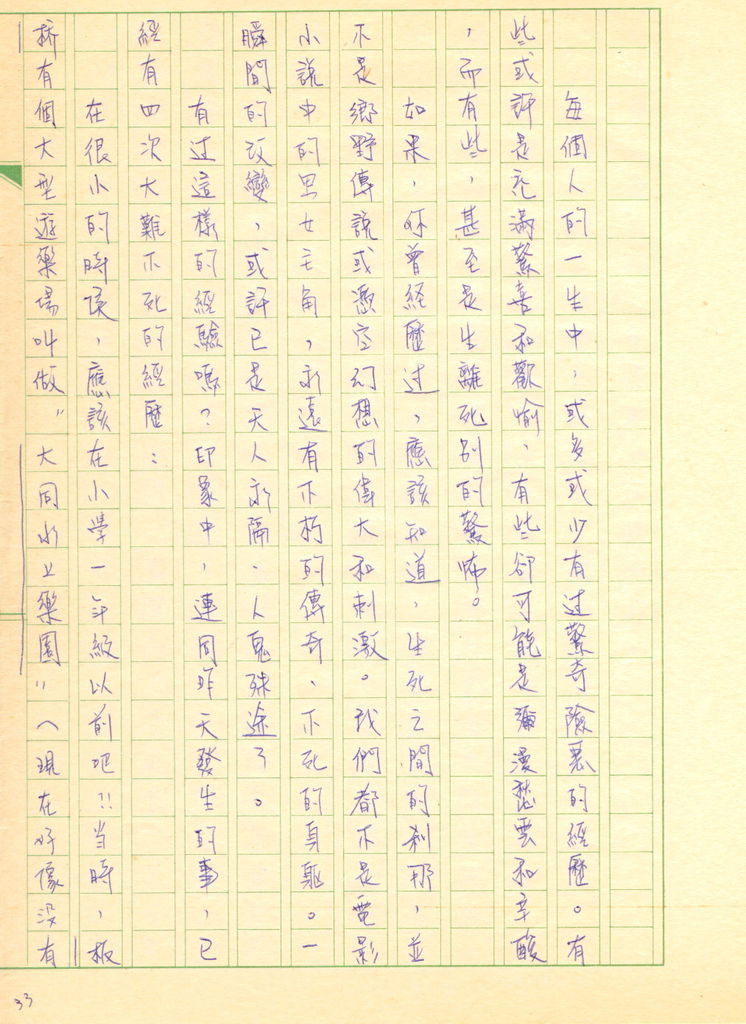 每個人的一生中，或多或少有过驚奇險惡的經歷。有
些或許是充滿驚喜和歡愉、有些卻可能是瀰漫愁雲和辛酸
，而有些，甚至是生離死別的驚怖。
如果，你曾経歷过，應該知道，生死之間的剎那，並
不是鄉野傳說或憑空幻想的偉大和刺激。我們都不是電影
小說中的男、女主角，永遠有不朽的傳奇、不死的真軀。一
瞬間的改變，或許已是天人永隔、人鬼殊途了。
有过這樣的經驗嗎？印象中，連同昨天發生的事，已
經有四次大難不死的經歷：
在很小的時候，應該在小學一年級以前吧!!当時，板
橋有個大型遊樂場叫做"大同水上樂園"（現在好像沒有
33